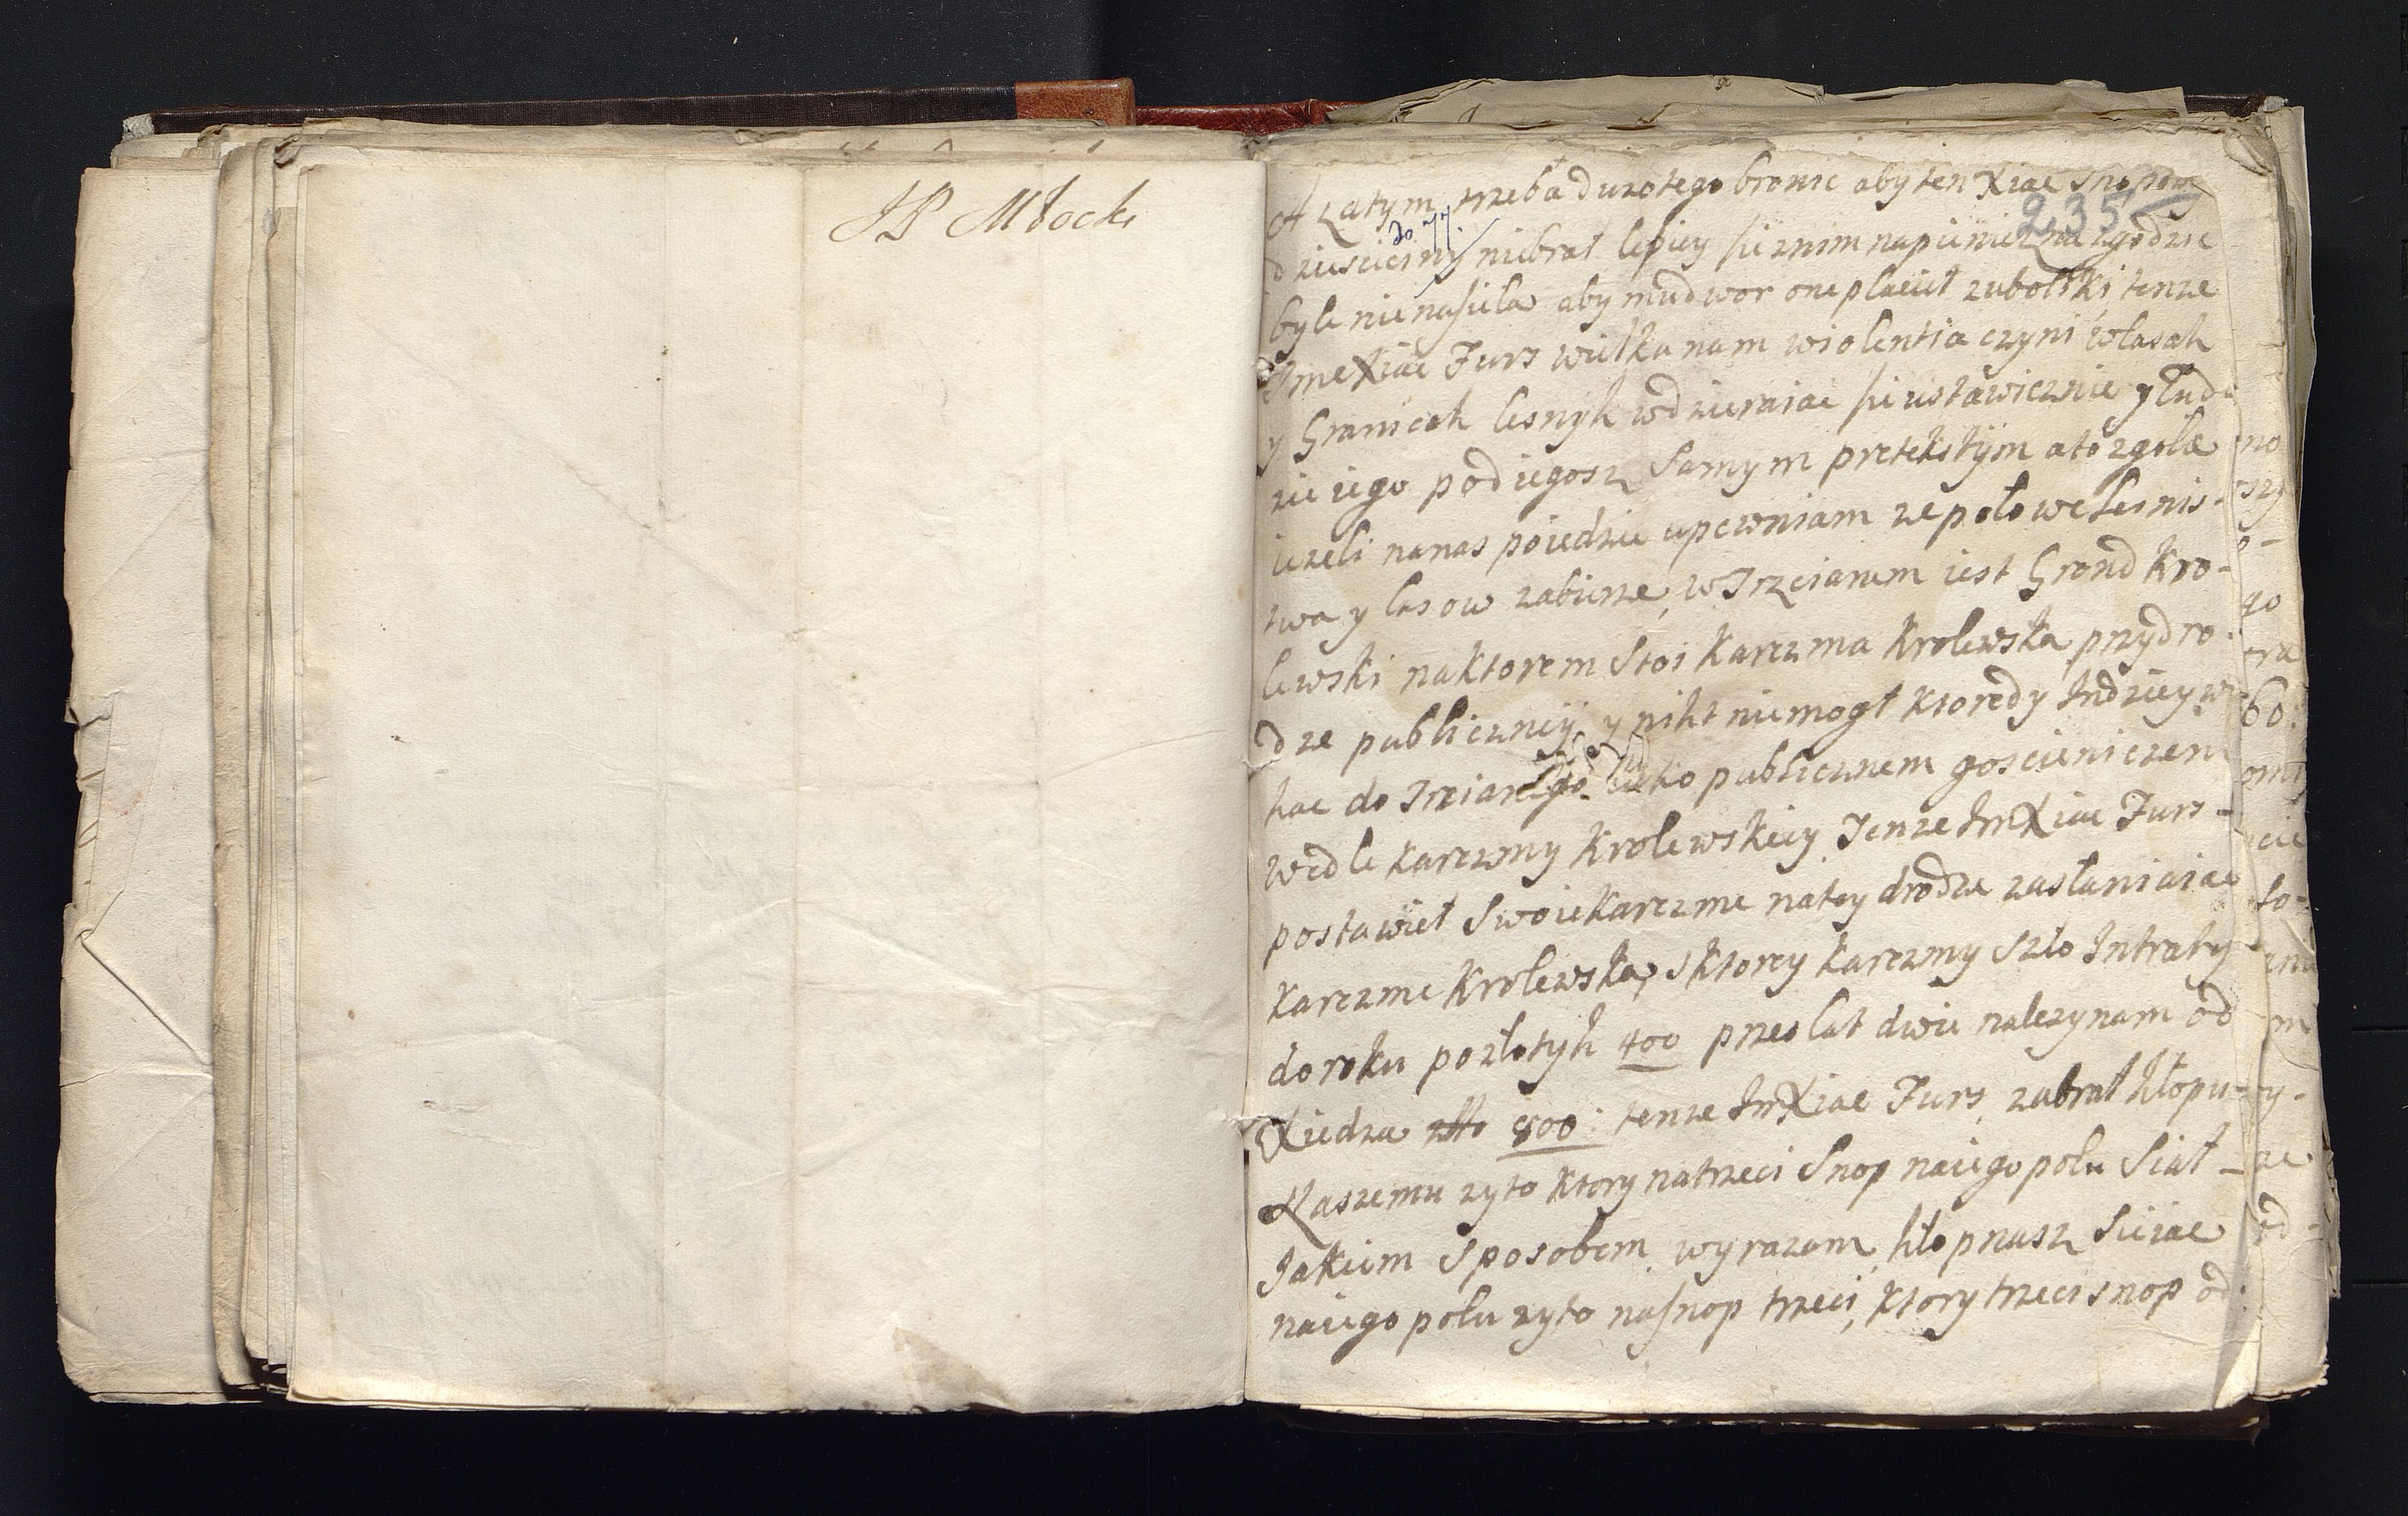 JP Młocki
A zatym trzeba duzo tego bronic aby ten Xiąc snop dw
235
do 77.
dziescieiny niebrał lepiey sie znim napieniez na zgodzic
byle nie nasieła aby mu dwor one płacieł zubolski tenze
Jme Xiac Furs wielka nam wiolentia czyni wlasah
y Granicah lesnyh wdzieraiac sie ustawicznie y łud
zie iego pod iegosz Samym pretekstÿm a to zgoła
iezeli nanas poiedzie upewniam ze połowe Lesnis-
twa y lasow zabierze, w Trzcianem iest Grond Kro-
lewski naktorem Stoi Karczma Krolewska przy dro-
dze publicznyÿ y niht niemogł ktoredy Indziey w
hac do Trzcianego tylko publicznem goscieniczem
wedle karczmy Krolewskiey Tenze Jm Xiac Furs-
postawieł Swoie Karczme natey drodze zasłaniaiac
karczme Krolewska, s ktorey karczmy Szło Intraty
do roku po złotyh 400 przes lat dwie nalezy nam od
Xiedza 800: tenze Jm Xiac Furs zabrał hłopu-
Naszemu zyto ktory natrzeci Snop na iego polu Siał-
Jakiem Sposobem wyrazam hłop nasz Sieiac
na iego polu zyto na snop trzeci, ktory trzeci snop od: